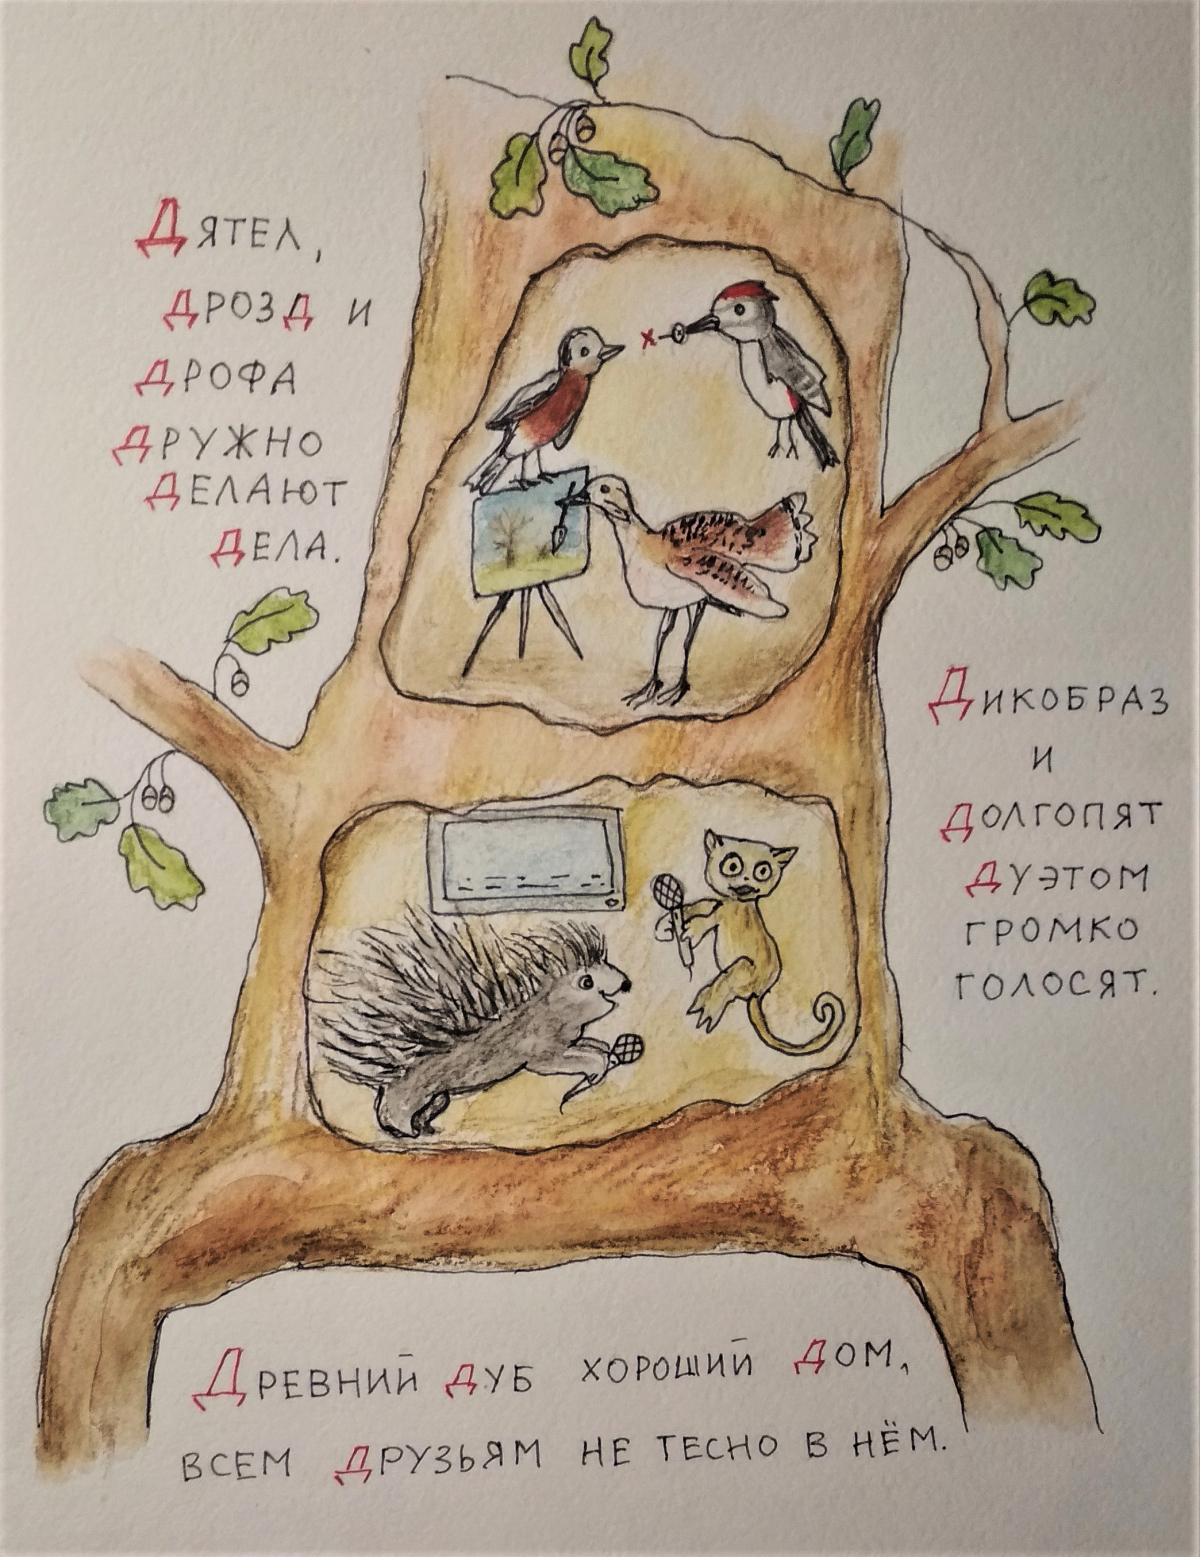 Дятел,
дрозд и
дрофа
дружно
делают
дела.
Дикобраз
и
долгопят
дуэтом
громко
голосят.
Древний дуб хороший дом,
всем друзьям не тесно в нём.